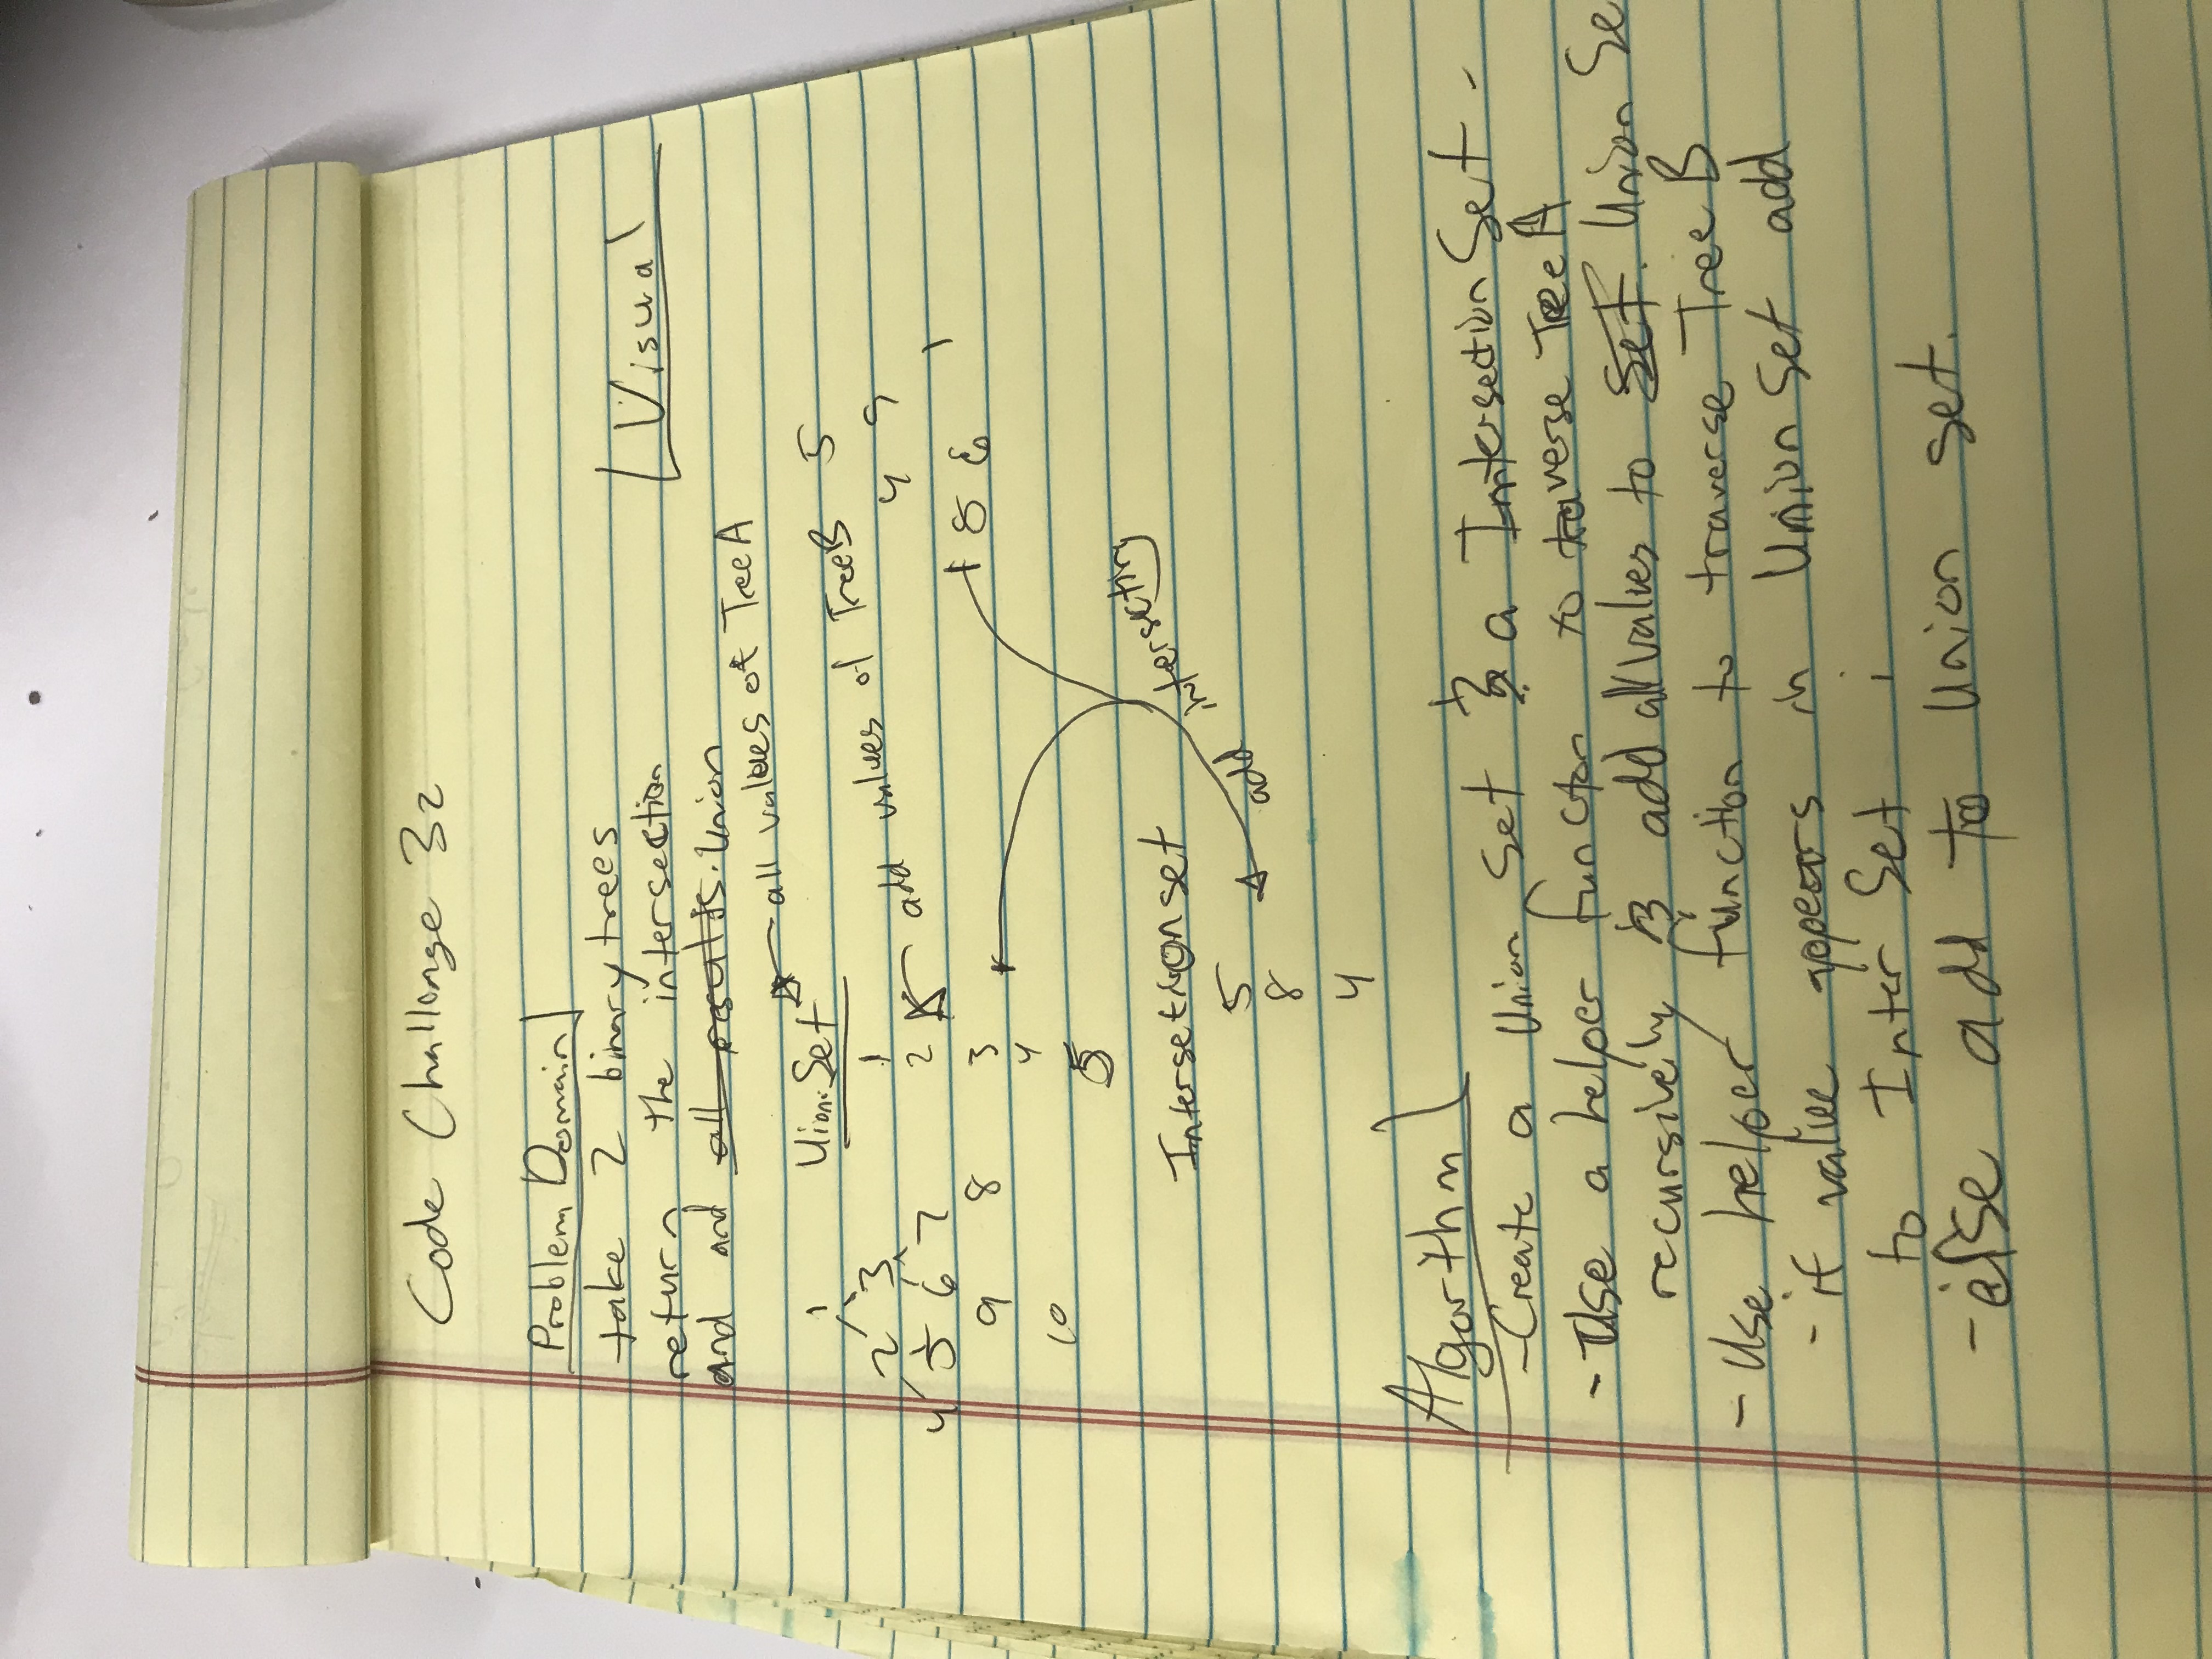 Code Challenge 32
Problem Domain
take 2 binary trees
return the intersection
Visual
and and all results. Union
all values of Tree A
Uion Set
1
2 3
4 5 6 7
9 8
10
1
2
3
4
5
add values of Tree B
5
4 9
8 6 1
Intersetion set
5
8
4
add intersecting
Algorthm
- Create a Union Set & a Intersection Set -
- Use a helper functon to traverse Tree A
recursively & add all values to Set. Union Se
- Use helper function to traverse Tree B
- if value appears in Union Set add
to Inter Set ;
- else add to Union set.